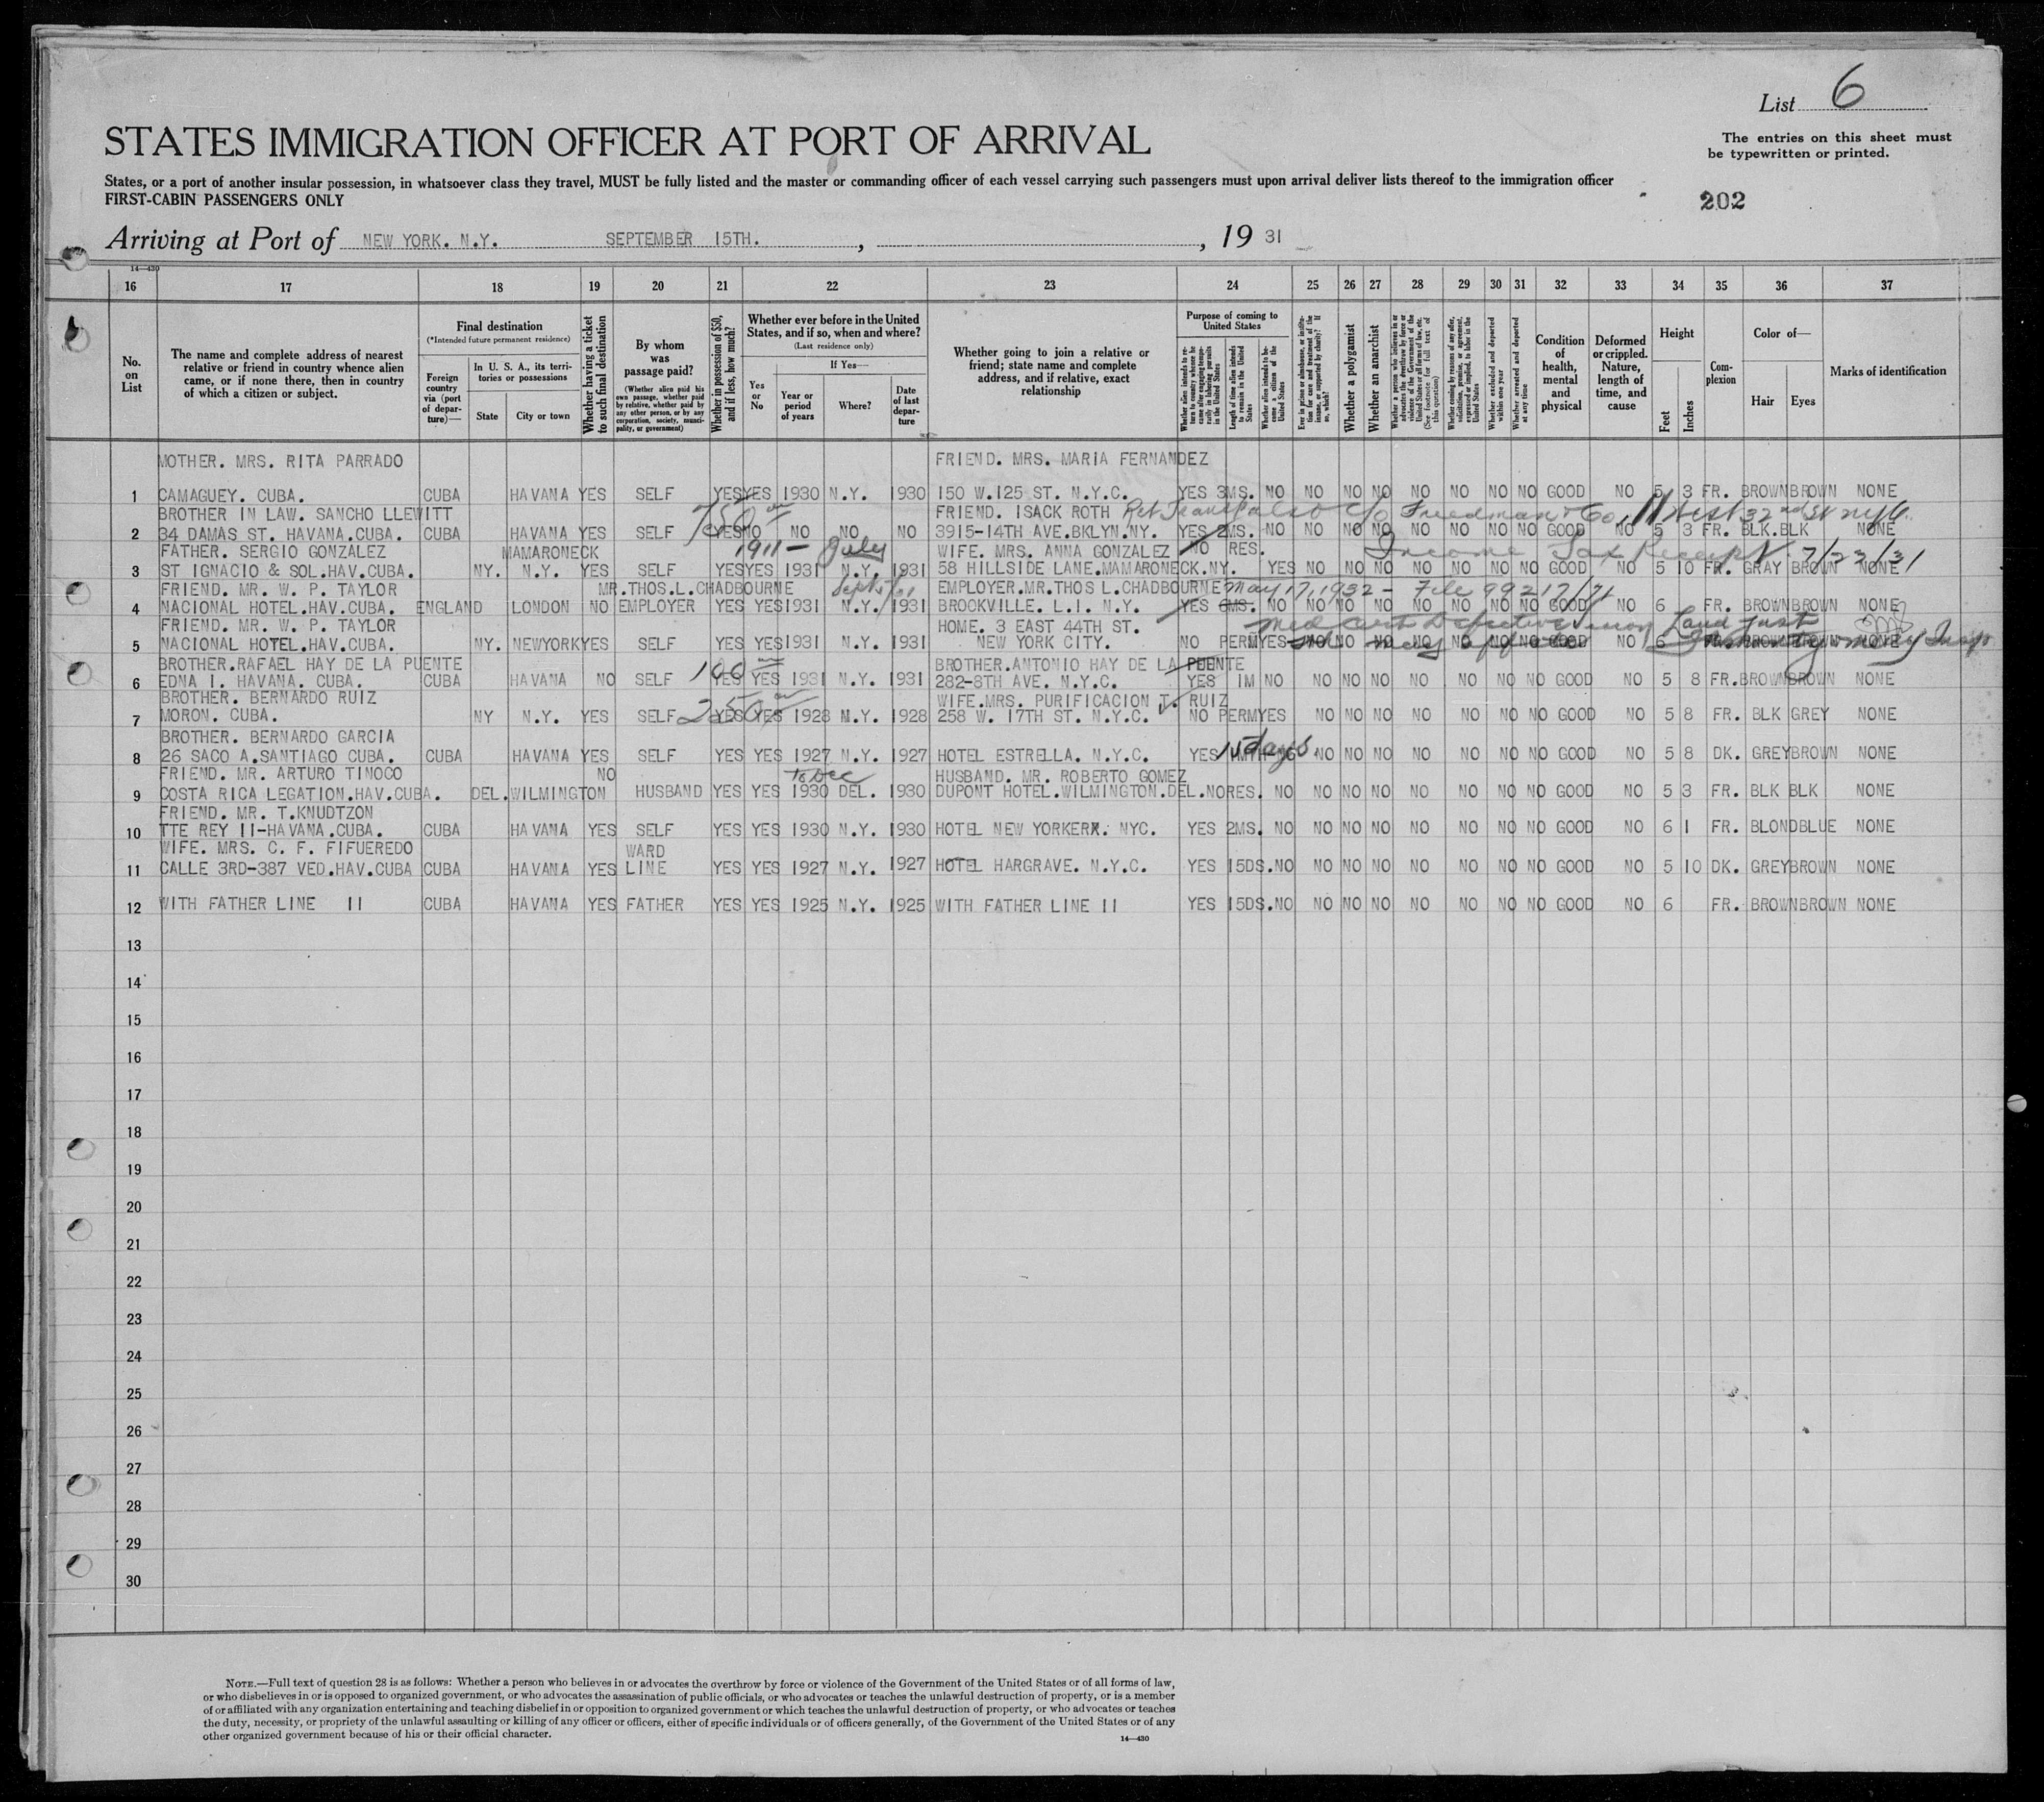 List 6
The entries on this sheet must
be typewritten or printed.
STATES IMMIGRATION OFFICER AT PORT OF ARRIVAL
States, or a port of another insular possession, in whatsoever class they travel, MUST be fully listed and the master or commanding officer of each vessel carrying such passengers must upon arrival deliver lists thereof to the immigration officer
FIRST-CABIN PASSENGERS ONLY
202
Arriving at Port of NEW YORK. N.Y. SEPTEMBER 15TH. , , 19 31
14—430
16 17 18 19 20 21 22 23 24 25 26 27 28 29 30 31 32 33 34 35 36 37
No. on List
The name and complete address of nearest relative or friend in country whence alien came, or if none there, then in country of which a citizen or subject.
Final destination
(*Intended future permanent residence)
Foreign country via (port of departure)—
In U. S. A., its territories or possessions
State City or town
Whether having a ticket to such final destination
By whom was passage paid?
(Whether alien paid his own passage, whether paid by relative, whether paid by any other person, or by any corporation, society, municipality, or government)
Whether in possession of $50, and if less, how much?
Whether ever before in the United States, and if so, when and where?
(Last residence only)
Yes or No
If Yes—
Year or period of years Where? Date of last departure
Whether going to join a relative or friend; state name and complete address, and if relative, exact relationship
Purpose of coming to United States
Length of time alien intends to remain in the United States
Whether alien intends to become a citizen of the United States
Whether a polygamist
Whether an anarchist
Whether excluded and deported within one year
Whether arrested and deported at any time
Condition of health, mental and physical
Deformed or crippled. Nature, length of time, and cause
Height
Feet Inches
Complexion
Color of—
Hair Eyes
Marks of identification
MOTHER. MRS. RITA PARRADO FRIEND. MRS. MARIA FERNANDEZ
1 CAMAGUEY. CUBA. CUBA HAVANA YES SELF YES YES 1930 N.Y. 1930 150 W.125 ST. N.Y.C. YES 3MS. NO NO NO NO NO NO NO NO GOOD NO 5 3 FR. BROWN BROWN NONE
BROTHER IN LAW. SANCHO LLEWITT FRIEND. ISACK ROTH c/o Friedman & Co, 11 West 32nd St nyc.
2 34 DAMAS ST. HAVANA.CUBA. CUBA HAVANA YES SELF YES NO NO NO NO 3915-14TH AVE.BKLYN.NY. YES 2MS. NO NO NO NO NO NO NO NO GOOD NO 5 3 FR. BLK. BLK NONE
FATHER. SERGIO GONZALEZ MAMARONECK 1911 - July WIFE. MRS. ANNA GONZALEZ NO RES. Income Tax Receipt 7/23/31
3 ST IGNACIO & SOL.HAV.CUBA. NY. N.Y. YES SELF YES YES 1931 N.Y. 1931 58 HILLSIDE LANE.MAMARONECK.NY. YES NO NO NO NO NO NO NO GOOD NO 5 10 FR. GRAY BROWN NONE
FRIEND. MR. W. P. TAYLOR MR.THOS.L.CHADBOURNE EMPLOYER.MR.THOS L.CHADBOURNE May 17, 1932 - File 99217/71
4 NACIONAL HOTEL.HAV.CUBA. ENGLAND LONDON NO EMPLOYER YES YES 1931 N.Y. 1931 BROOKVILLE. L.I. N.Y. YES 6MS. NO NO NO NO NO NO NO NO GOOD NO 6 FR. BROWN BROWN NONE
FRIEND. MR. W. P. TAYLOR HOME. 3 EAST 44TH ST. Med Cert Defective vision
5 NACIONAL HOTEL.HAV.CUBA. NY. NEWYORK YES SELF YES YES 1931 N.Y. 1931 NEW YORK CITY. NO PERM YES NO NO NO NO NO NO NO GOOD NO 6 BROWN BROWN NONE
BROTHER.RAFAEL HAY DE LA PUENTE 100 BROTHER.ANTONIO HAY DE LA PUENTE
6 EDNA I. HAVANA. CUBA. CUBA HAVANA NO SELF YES YES 1931 N.Y. 1931 282-8TH AVE. N.Y.C. YES 1M NO NO NO NO NO NO NO NO GOOD NO 5 8 FR. BROWN BROWN NONE
BROTHER. BERNARDO RUIZ 250 WIFE.MRS. PURIFICACION T. RUIZ
7 MORON. CUBA. NY N.Y. YES SELF YES YES 1928 N.Y. 1928 258 W. 17TH ST. N.Y.C. NO PERM YES NO NO NO NO NO NO NO GOOD NO 5 8 FR. BLK GREY NONE
BROTHER. BERNARDO GARCIA
8 26 SACO A.SANTIAGO CUBA. CUBA HAVANA YES SELF YES YES 1927 N.Y. 1927 HOTEL ESTRELLA. N.Y.C. YES 15 days NO NO NO NO NO NO NO GOOD NO 5 8 DK. GREY BROWN NONE
FRIEND. MR. ARTURO TINOCO NO to Dec HUSBAND. MR. ROBERTO GOMEZ
9 COSTA RICA LEGATION.HAV.CUBA. DEL. WILMINGTON HUSBAND YES YES 1930 DEL. 1930 DUPONT HOTEL.WILMINGTON.DEL. NO RES. NO NO NO NO NO NO NO NO GOOD NO 5 3 FR. BLK BLK NONE
FRIEND. MR. T.KNUDTZON
10 TTE REY 11-HAVANA.CUBA. CUBA HAVANA YES SELF YES YES 1930 N.Y. 1930 HOTEL NEW YORKER. NYC. YES 2MS. NO NO NO NO NO NO NO NO GOOD NO 6 1 FR. BLOND BLUE NONE
WIFE. MRS. C. F. FIFUEREDO WARD
11 CALLE 3RD-387 VED.HAV.CUBA CUBA HAVANA YES LINE YES YES 1927 N.Y. 1927 HOTEL HARGRAVE. N.Y.C. YES 15DS. NO NO NO NO NO NO NO NO GOOD NO 5 10 DK. GREY BROWN NONE
12 WITH FATHER LINE 11 CUBA HAVANA YES FATHER YES YES 1925 N.Y. 1925 WITH FATHER LINE 11 YES 15DS. NO NO NO NO NO NO NO NO GOOD NO 6 FR. BROWN BROWN NONE
13
14
15
16
17
18
19
20
21
22
23
24
25
26
27
28
29
30
NOTE.—Full text of question 28 is as follows: Whether a person who believes in or advocates the overthrow by force or violence of the Government of the United States or of all forms of law,
or who disbelieves in or is opposed to organized government, or who advocates the assassination of public officials, or who advocates or teaches the unlawful destruction of property, or is a member
of or affiliated with any organization entertaining and teaching disbelief in or opposition to organized government or which teaches the unlawful destruction of property, or who advocates or teaches
the duty, necessity, or propriety of the unlawful assaulting or killing of any officer or officers, either of specific individuals or of officers generally, of the Government of the United States or of any
other organized government because of his or their official character.
14—430